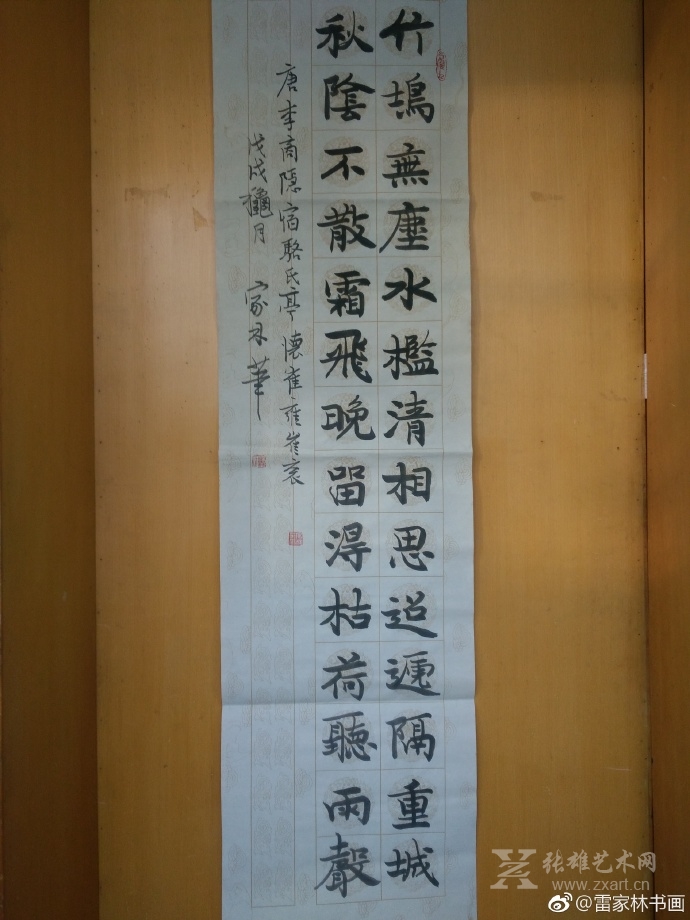 竹塢無塵水檻清相思迢遞隔重城
秋陰不散霜飛晚畱得枯荷聽雨聲
唐李商隱宿駱氏亭懷崔雍崔衮
戊戌龝月 家林華
张雄艺术网
www.zxart.cn
@雷家林书画